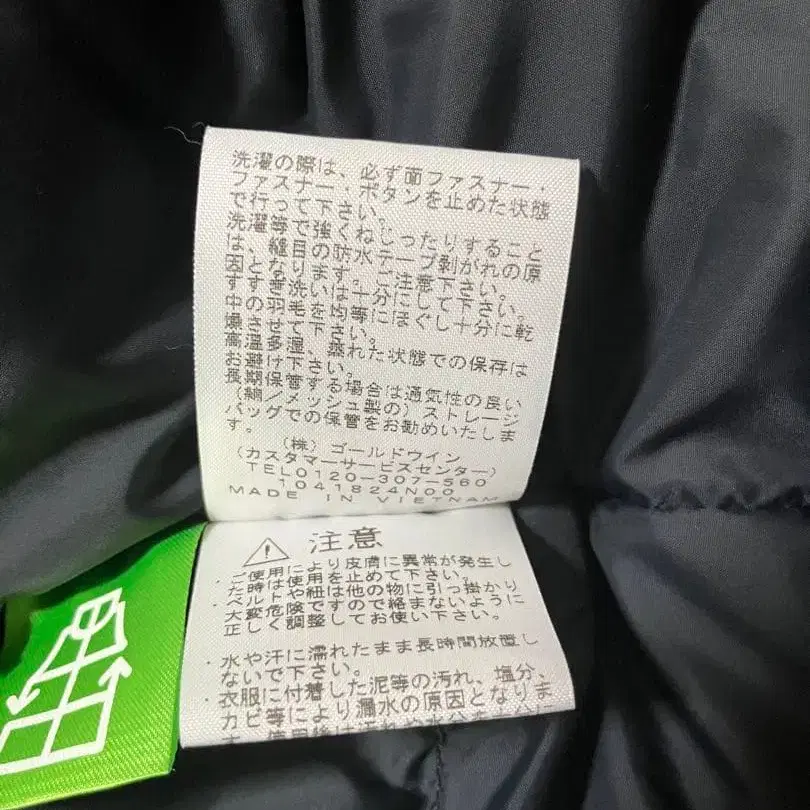 洗濯の際は、必ず面ファスナー・
ファスナー・ボタンを止めた状態
で行って下さい。
洗濯等で強くねじったりすること
は、縫目の防水テープ剥がれの原
因となります。ご注意下さい。
すすぎ洗いは十分にして下さい。
中の羽毛を均等にほぐし十分に乾
燥させて下さい。
高温多湿、蒸れた状態での保存は
お避け下さい。
長期保管する場合は通気性の良い
(綿/メッシュ製の)ストレージ
バッグでの保管をお勧めいたしま
す。
(株)ゴールドウイン
(カスタマーサービスセンター)
TEL0120-307-560
1041824N00
MADE IN VIETNAM
注意
・ご使用により皮膚に異常が発生し
た時は使用を止めて下さい。
・ベルトや紐は他の物に引っ掛かり
大変危険ですので絡まないように
正しく調整してお使い下さい。
・水や汗に濡れたまま長時間放置し
ないで下さい。
・衣服に付着した泥等の汚れ、塩分、
カビ等により漏水の原因となりま
す。使用後は汚れや水分を十分に